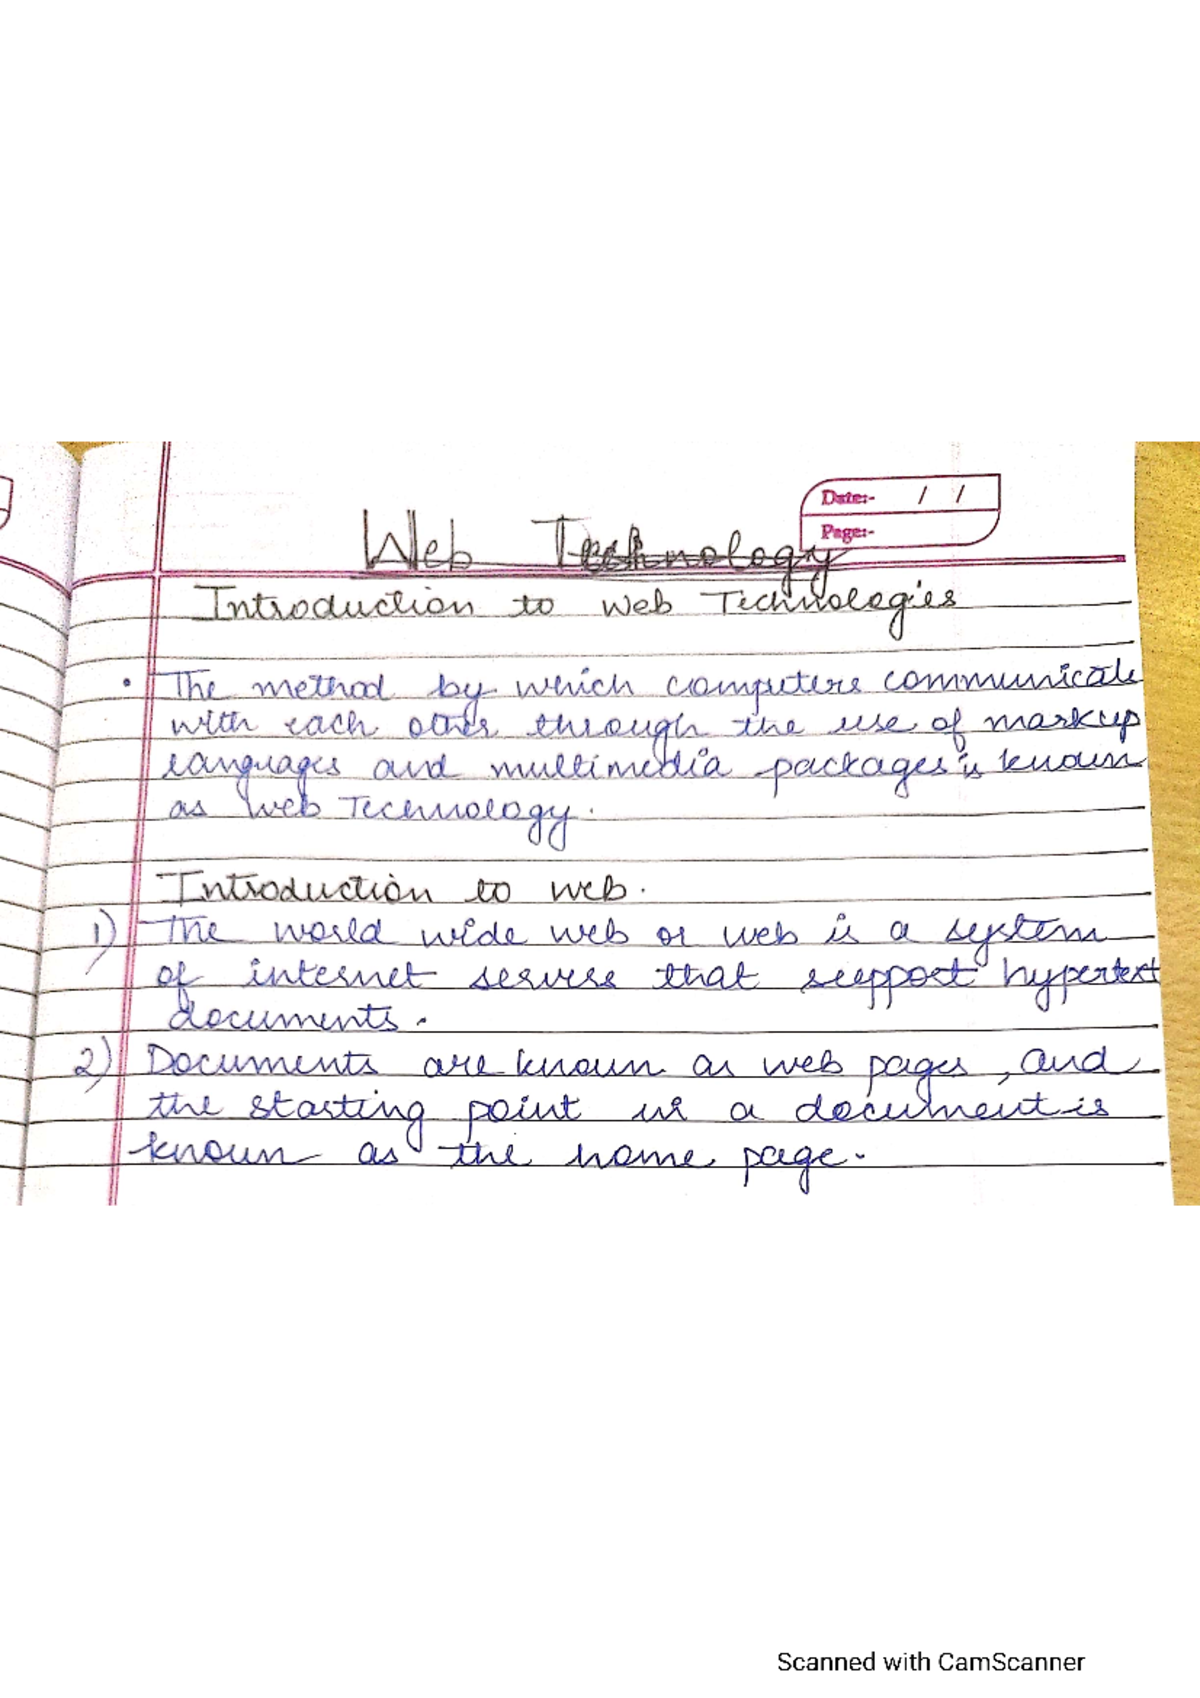 Date:- / /
Page:-
Web Technology
Introduction to Web Technologies
• The method by which computers communicate
with each other through the use of markup
languages and multimedia packages is known
as Web Technology.
Introduction to web.
1) The world wide web or web is a system
of internet servers that support hypertext
documents.
2) Documents are known as web pages, and
the starting point in a document is
known as the home page.
Scanned with CamScanner